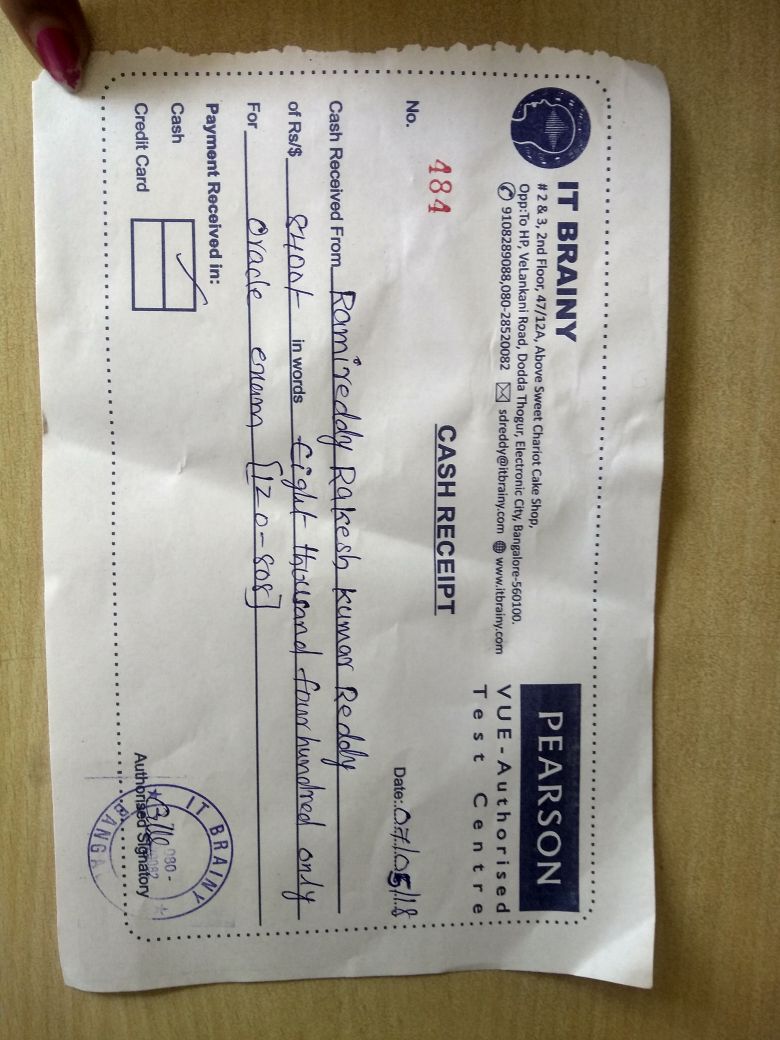 IT BRAINY
# 2 & 3, 2nd Floor, 47/12A, Above Sweet Chariot Cake Shop,
Opp:To HP, VeLankani Road, Dodda Thogur, Electronic City, Bangalore-560100.
9108289088,080-28520082 sdreddy@itbrainy.com www.itbrainy.com
PEARSON
VUE-Authorised
Test Centre
CASH RECEIPT
No. 484
Date:.07/05/18
Cash Received From Ramireddy Rakesh kumar Reddy
of Rs/$ 8400/- in words Eight thousand four hundred only
For Oracle exam [1Z0-808]
Payment Received in:
Cash ✓
Credit Card
IT BRAINY
080-
Authorised Signatory